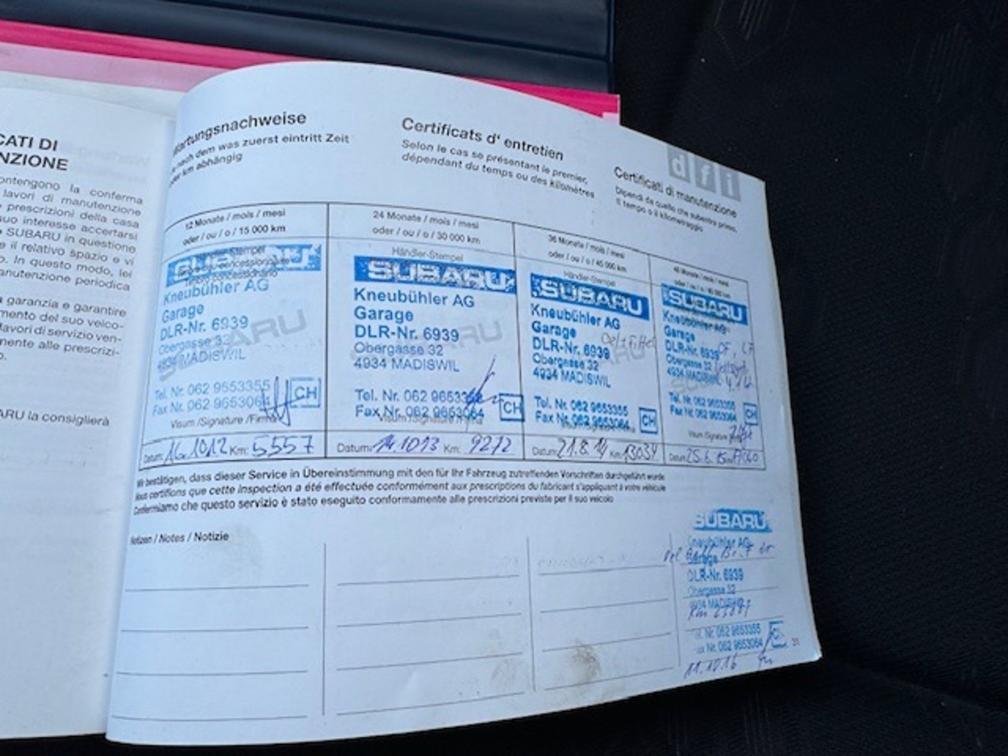 CATI DI
ENZIONE
ontengono la conferma
lavori di manutenzione
prescrizioni della casa
suo interesse accertarsi
SUBARU in questione
e il relativo spazio e vi
o. In questo modo, lei
anutenzione periodica
a garanzia e garantire
mento del suo veico-
lavori di servizio ven-
mente alle prescrizi-
o.
ARU la consiglierà
Wartungsnachweise
Je nach dem was zuerst eintritt Zeit
oder km abhängig
Certificats d' entretien
Selon le cas se présentant le premier,
dépendant du temps ou des kilomètres
dfi
Certificati di manutenzione
Dipende da quello che subentra prima.
Il tempo o il kilometraggio
12 Monate / mois / mesi
oder / ou / o / 15 000 km
SUBARU
Kneubühler AG
Garage
DLR-Nr. 6939
Obergasse 32
4934 MADISWIL
Tel. Nr. 062 9653355
Fax Nr. 062 9653064
CH
Visum /Signature /Firma
Datum: 16.10.12 Km: 5557
24 Monate / mois / mesi
oder / ou / o / 30 000 km
Händler-Stempel
SUBARU
Kneubühler AG
Garage
DLR-Nr. 6939
Obergasse 32
4934 MADISWIL
Tel. Nr. 062 9653355
Fax Nr. 062 9653064
CH
Visum /Signature /Firma
Datum: 14.10.13 Km: 9272
36 Monate / mois / mesi
oder / ou / o / 45 000 km
Händler-Stempel
SUBARU
Kneubühler AG
Garage
DLR-Nr. 6939
Obergasse 32
4934 MADISWIL
Tel. Nr. 062 9653355
Fax Nr. 062 9653064
CH
Datum: 21.8.14 Km: 13034
48 Monate / mois / mesi
oder / ou / o / 60 000 km
SUBARU
Kneubühler AG
Garage
DLR-Nr. 6939
Obergasse 32
4934 MADISWIL
Tel. Nr. 062 9653355
Fax Nr. 062 9653064
CH
Visum /Signature
Datum: 25.6.15
Wir bestätigen, dass dieser Service in Übereinstimmung mit den für Ihr Fahrzeug zutreffenden Vorschriften durchgeführt wurde
Nous certifions que cette inspection a été effectuée conformément aux prescriptions du fabricant s'appliquant à votre véhicule
Confermiamo che questo servizio è stato eseguito conformamente alle prescrizioni previste per il suo veicolo
Notizen / Notes / Notizie
SUBARU
Kneubühler AG
Garage
DLR-Nr. 6939
Obergasse 32
4934 MADISWIL
Tel. Nr. 062 9653355
Fax Nr. 062 9653064
11.10.16
31